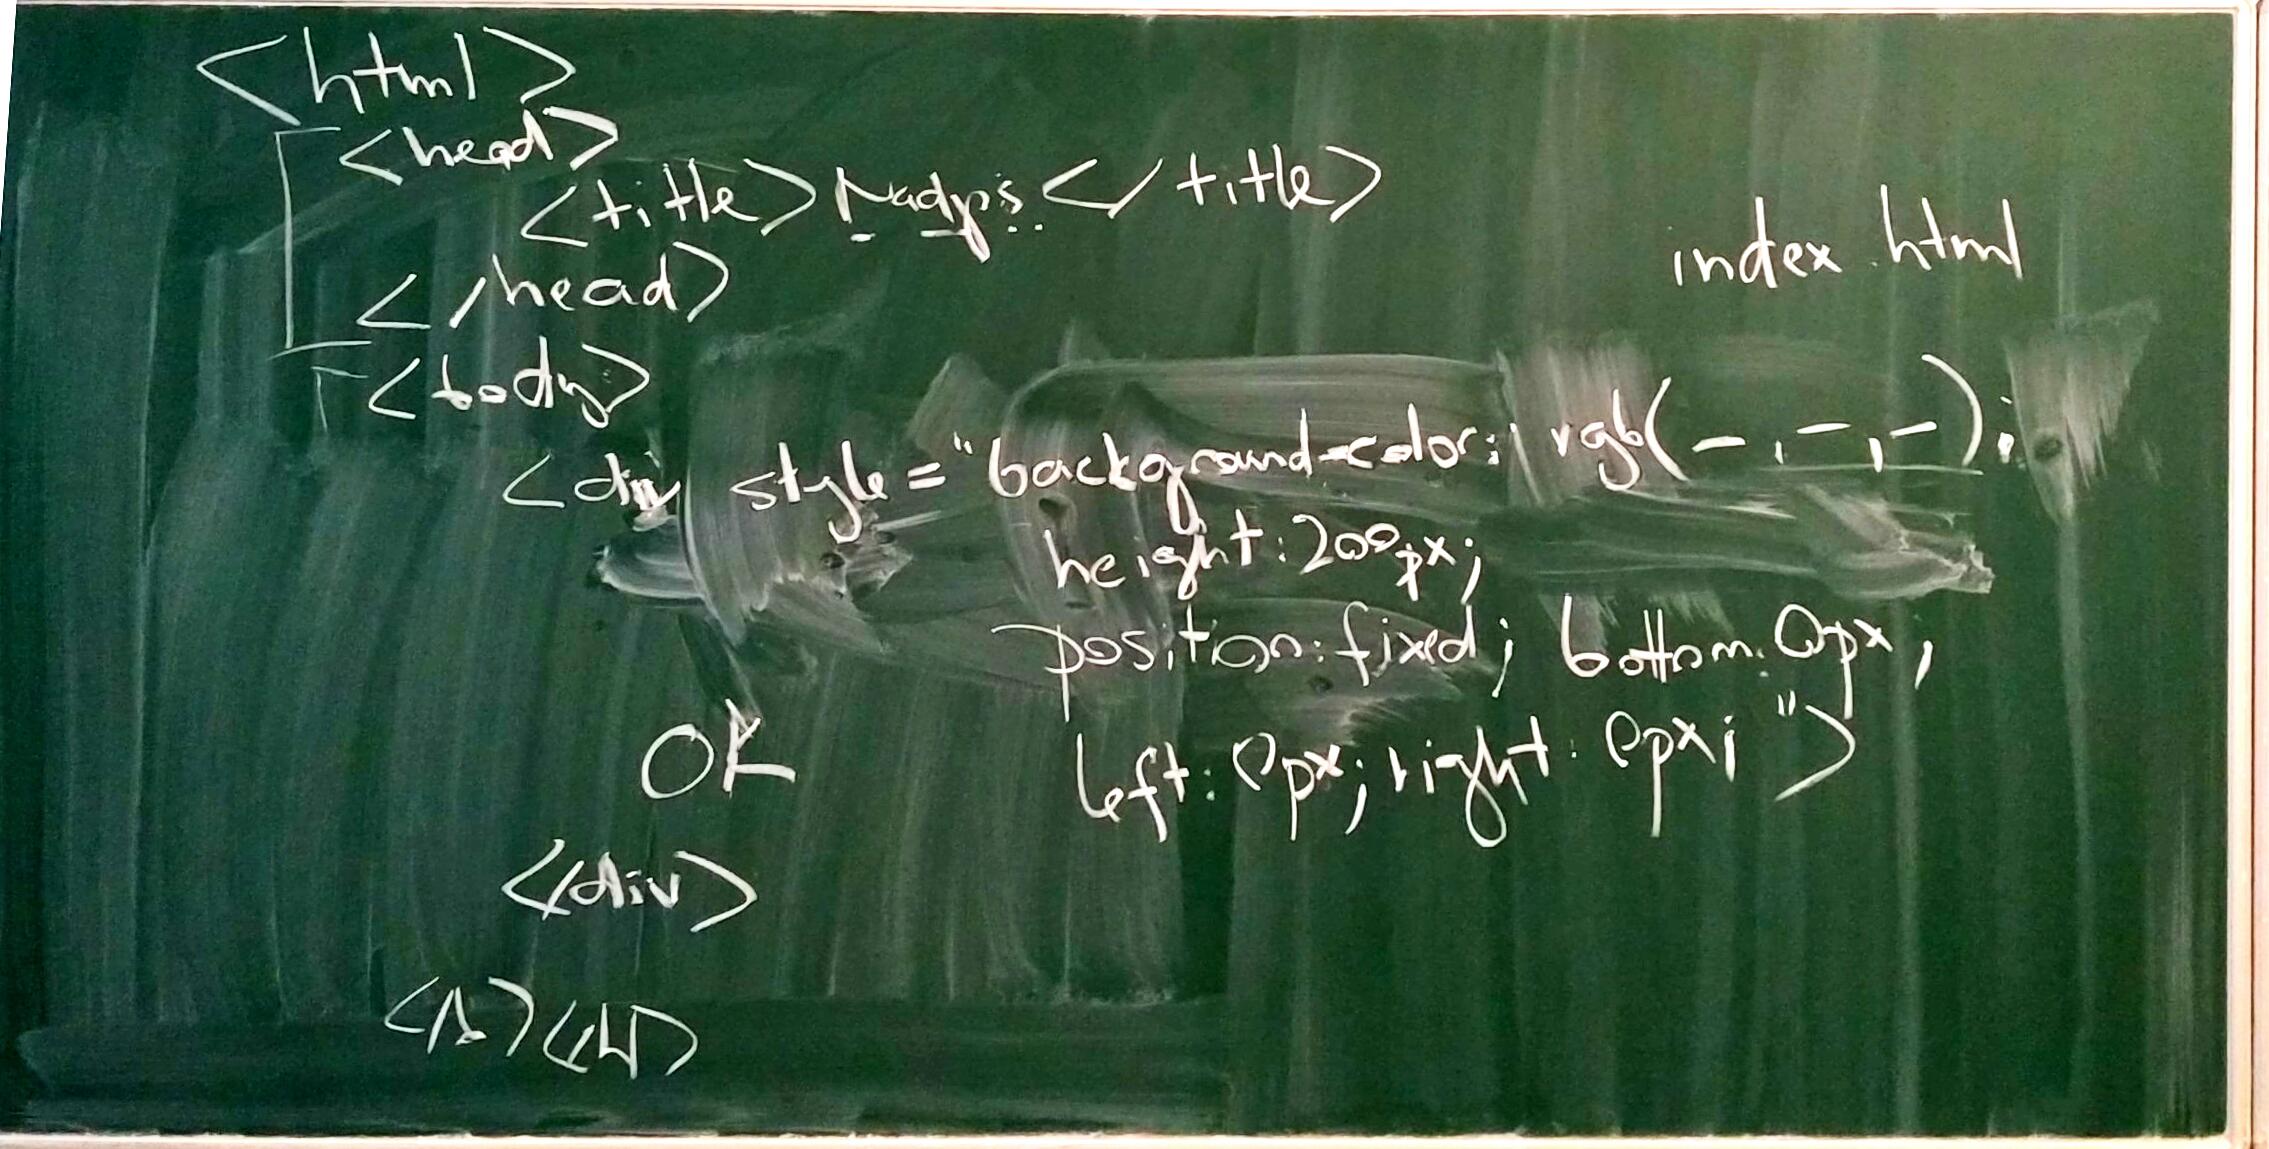 <html>
<head>
<title>Nadpis</title>
index.html
</head>
<body>
<div style="background-color: rgb(_,_,_);
height:200px;
position:fixed; bottom:0px;
left:0px; right:0px;">
OK
</div>
</b></h>